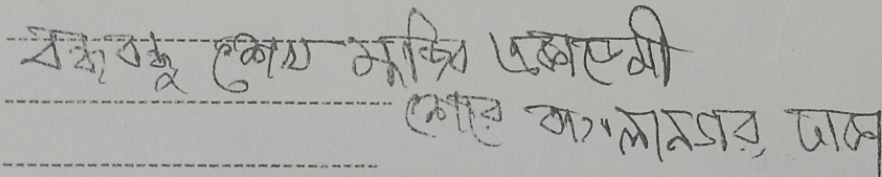 বঙ্গবন্ধু শেখ মুজিব একাডেমী
শের বাংলানগর, ঢাকা